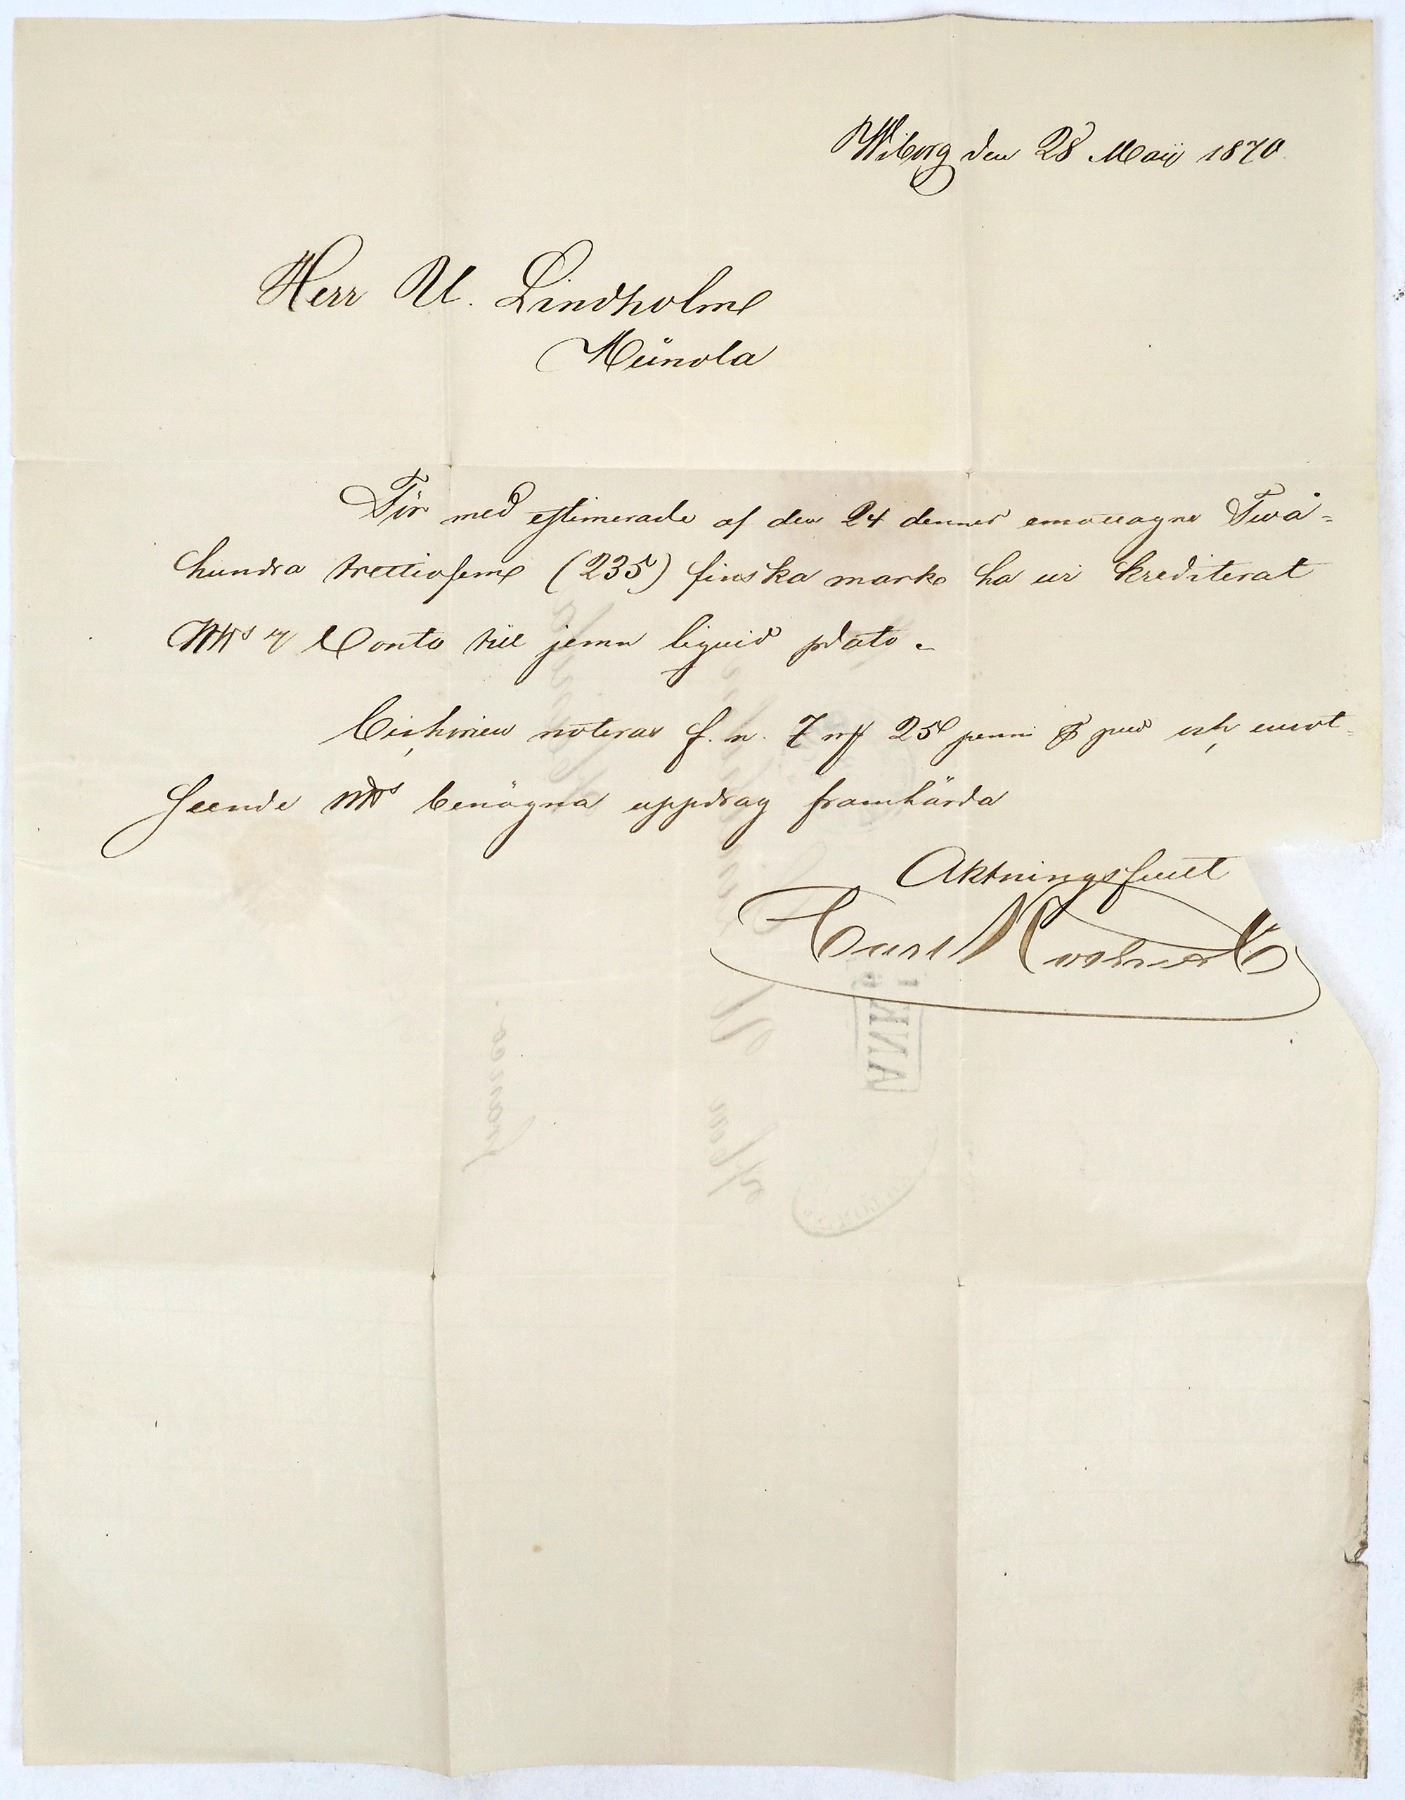 Wiborg den 28 Maij 1870.
Herr U. Lindholm
Heinola
För med estimerade af den 24 dennes emottagne Twå=
hundra trettiofem (235) finska mark ha vi krediterat
Conto till jemn liquid pr dato.
noteras f. n. 7 mk 25 penni pr pud och emot-
seende benägna uppdrag framhärda
Aktningsfullt
Franco